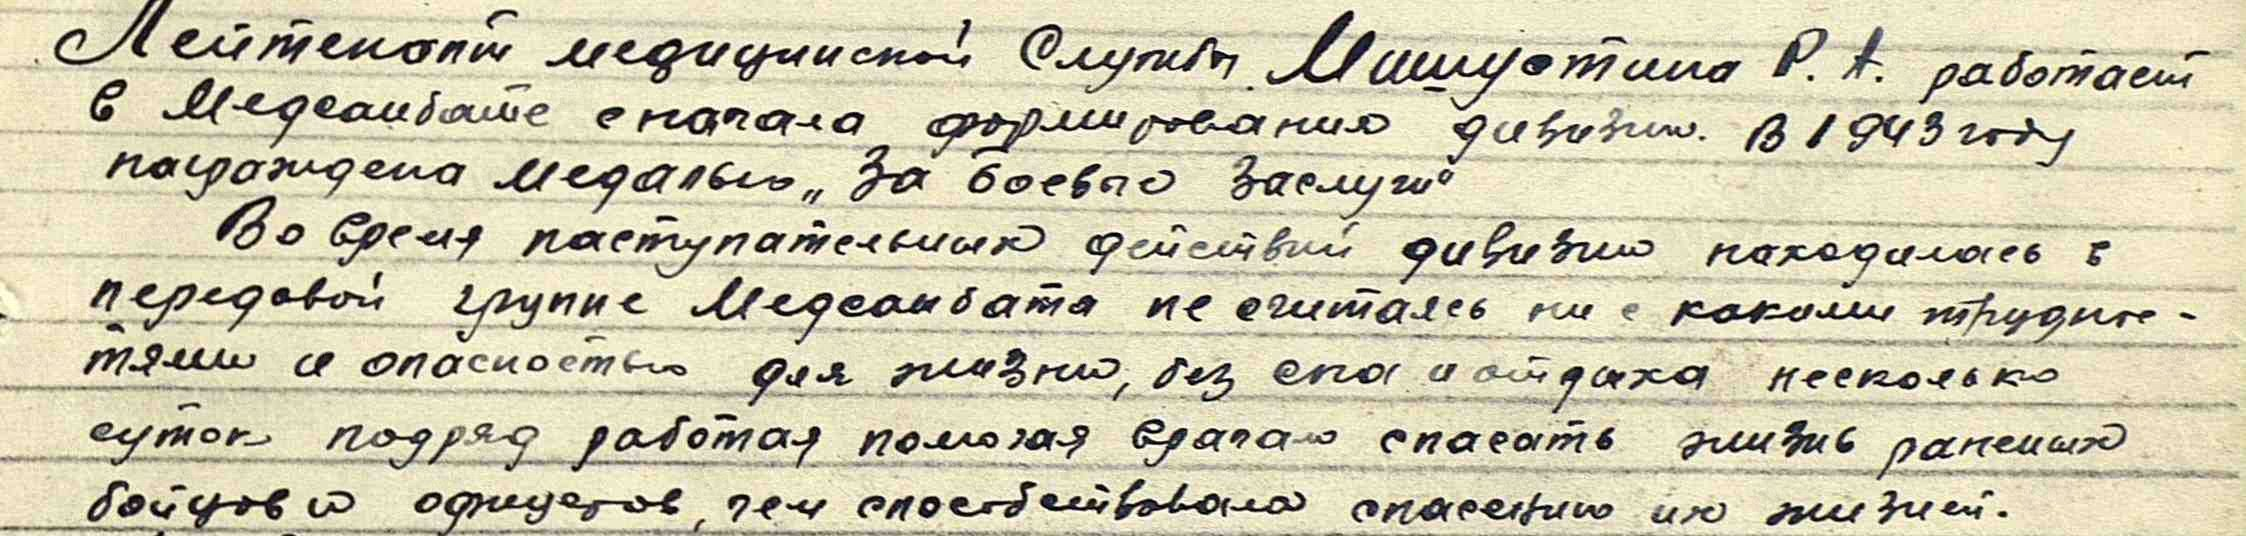 Лейтенант медицинской Службы Мишустина Р. А. работает
в Медсанбате с начала формирования дивизии. В 1943 году
награждена медалью „За боевые заслуги“
Во время наступательных действий дивизии находилась в
передовой группе Медсанбата не считаясь ни с какими труднос-
тями и опасностью для жизни, без сна и отдыха несколько
суток подряд работая помогая врачам спасать жизнь раненых
бойцов и офицеров, чем способствовала спасению их жизней.